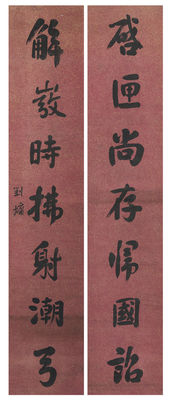 啓匣尚存歸國詔
解弢時拂射潮弓
劉墉